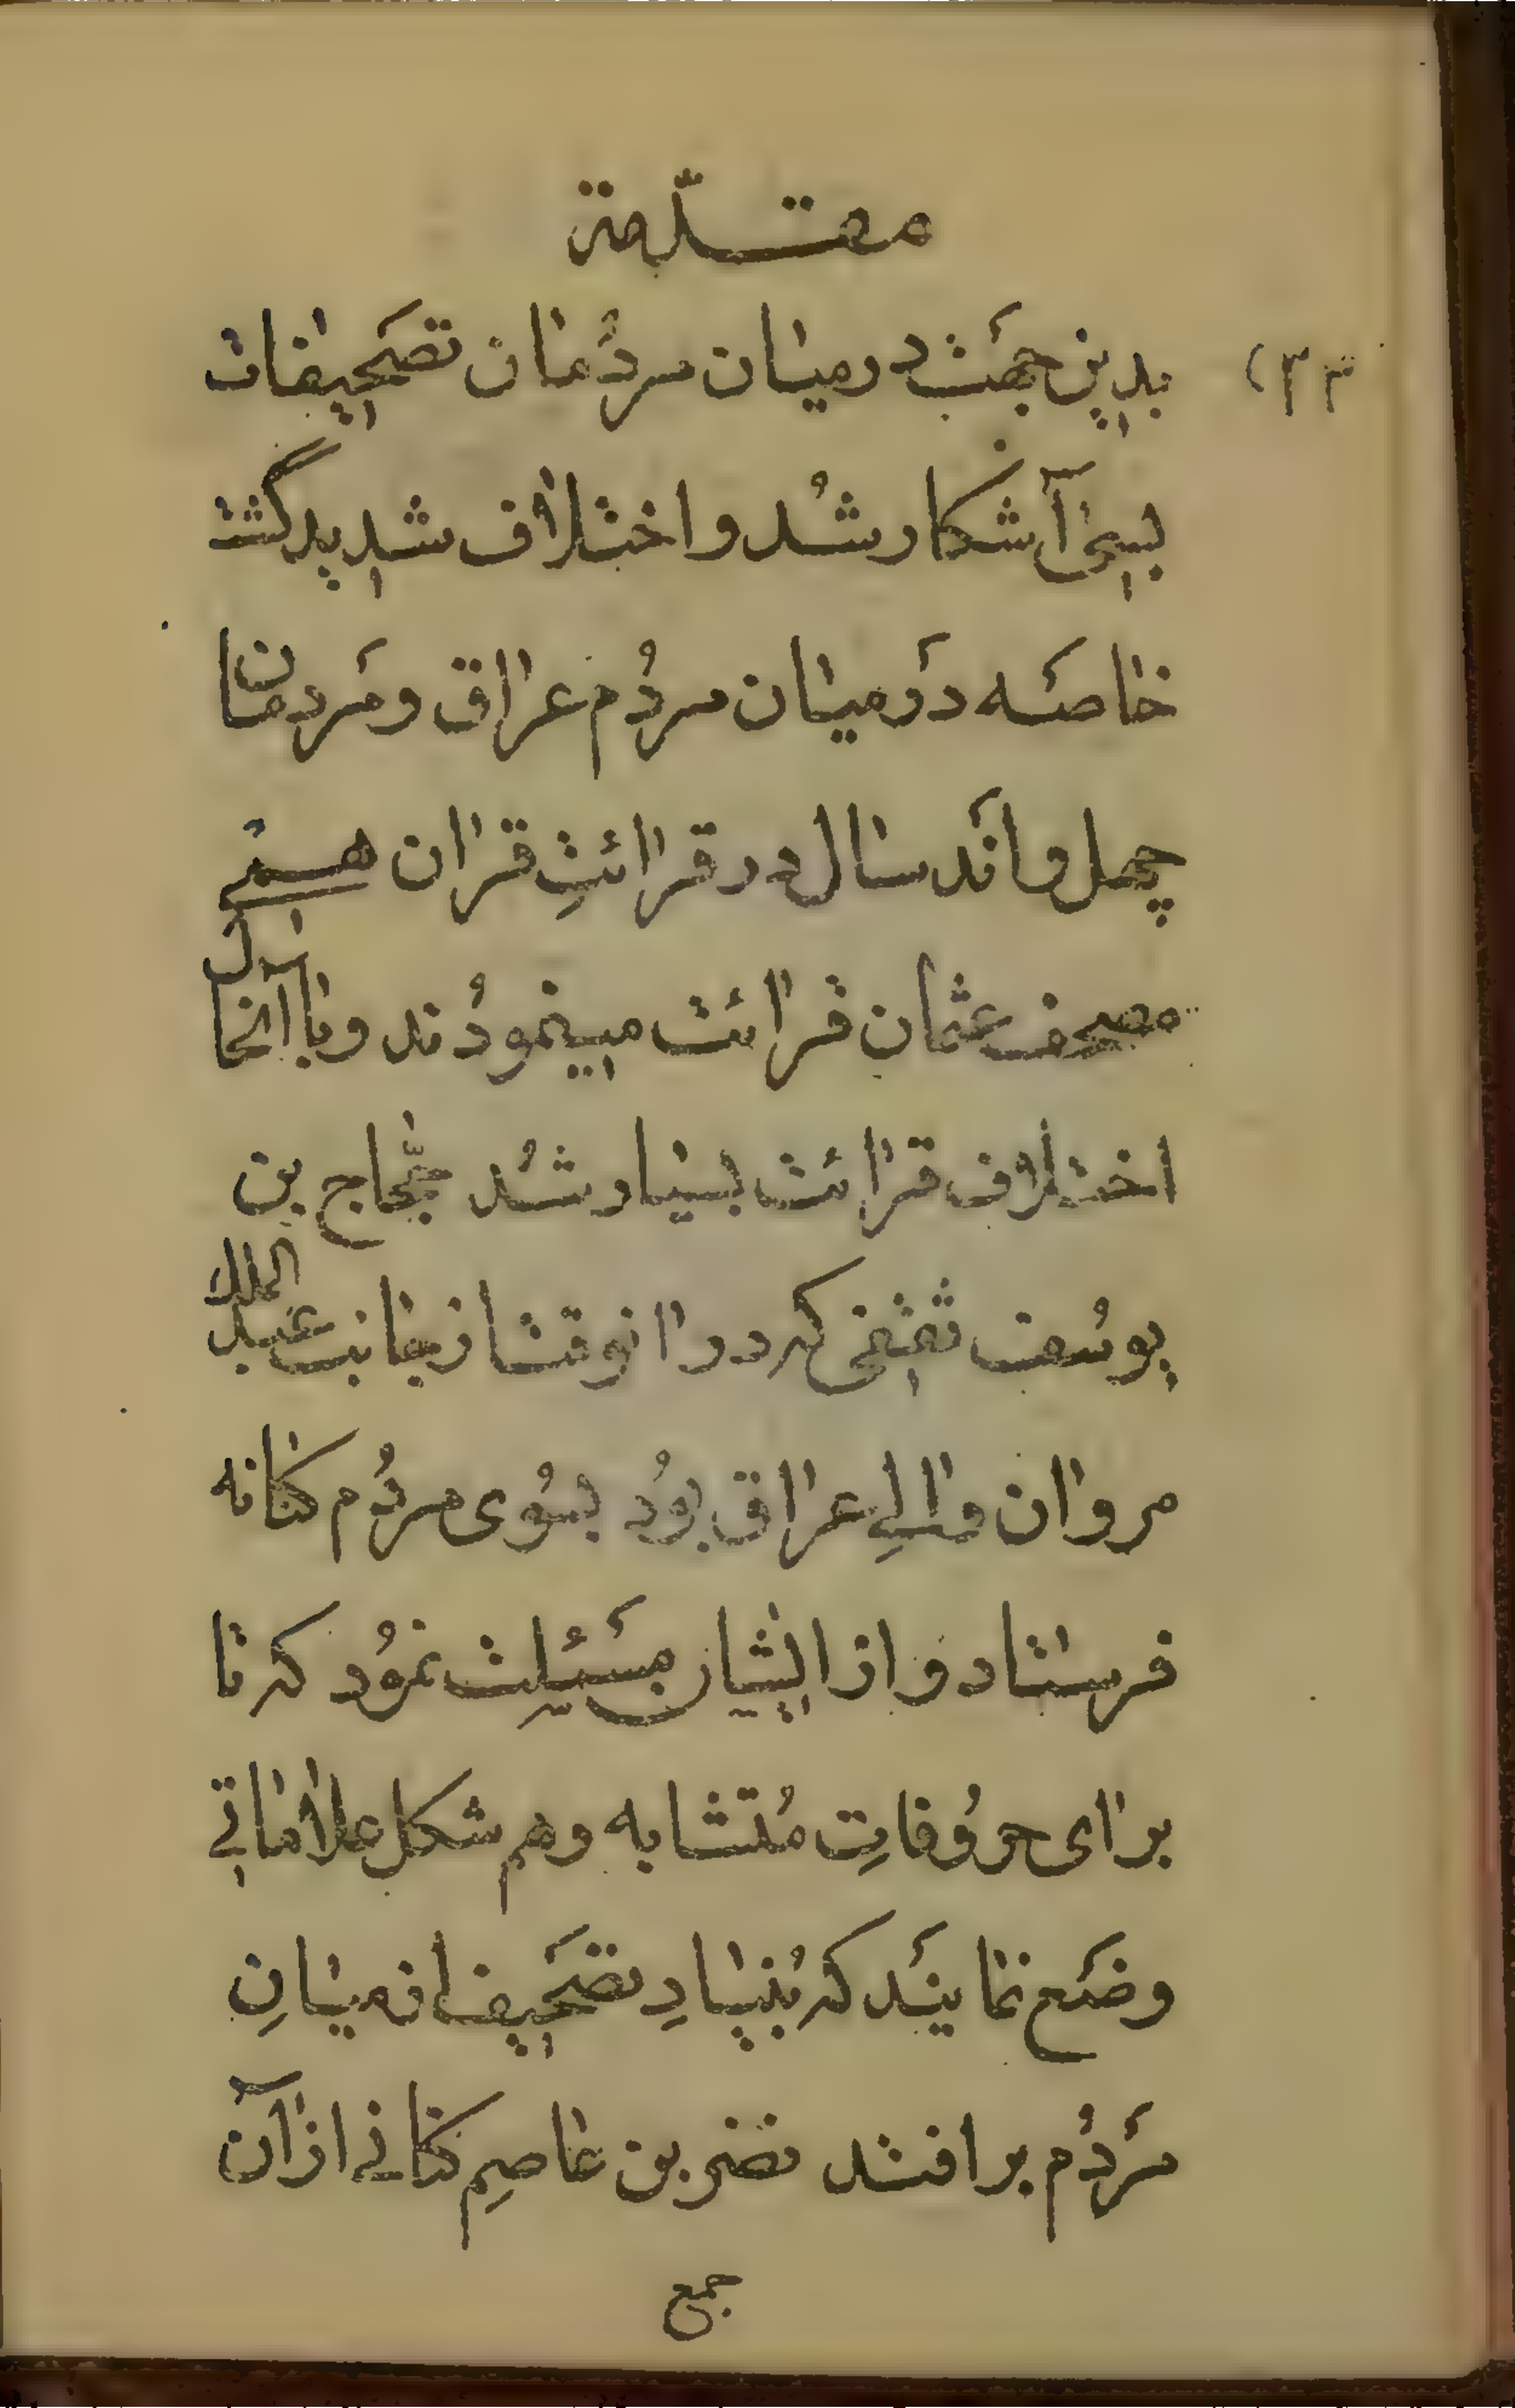 مقدّمة
بدین جهَت در میان مردُمان تصَحیفات
بسی آشکار شُد و اختلاف شدید گشت
خاصَه دَر میان مردُم عراق و مَردمان
چهل و اَند سال در قرائتِ قران همی
مصحف عثمان قرائت مینموُدند و با آنحال
اختلاف قرائت بسیار شُد حجّاج بن
یوسُف ثقفی که در انوقت از جانب عبد الملک
مروان والیِ عراق بوُد بسوُی مردُم کنانه
فرستاد و از ایشان مسَئِلت نموُد که تا
برای حروُفاتِ مُتشابه و هم شکل علاماتی
وضَع نمایَند که بُنیادِ تصَحیف از میانِ
مَردُم برافتد نصر بن عاصِم کنانی از آن
جمع